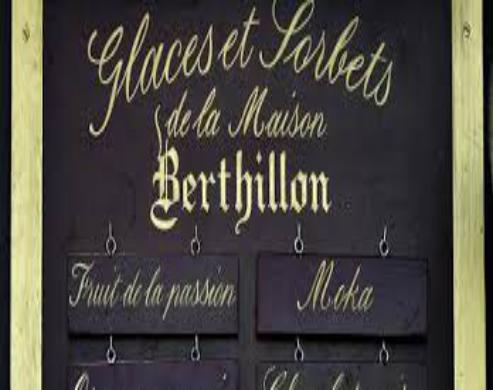 Glaces et Sorbets
de la Maison
Berthillon
Fruit de la passion
Moka